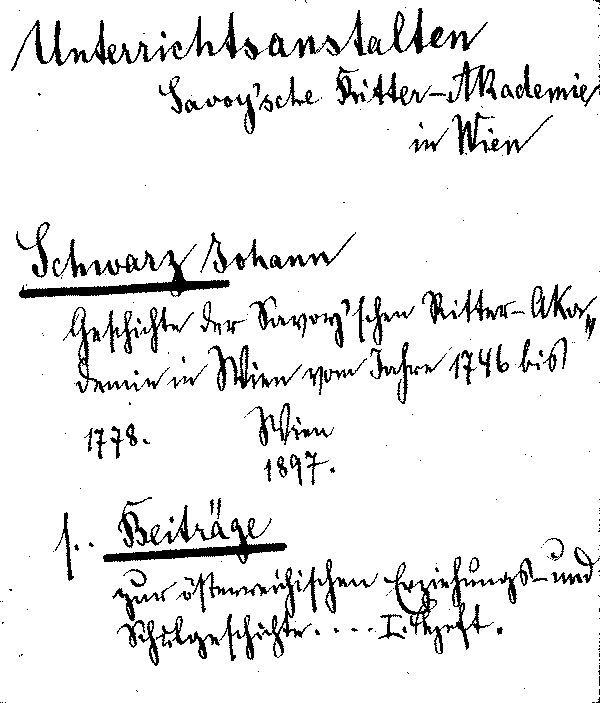 Unterrichtsanstalten
Savoy'sche Ritter-Akademie
in Wien
Schwarz Johann
Geschichte der Savoy'schen Ritter-Aka„
demie in Wien vom Jahre 1746 bis
1778. Wien
1897.
s.. Beiträge
zur österreichischen Erziehungs- und
Schulgeschichte.... I. Heft.